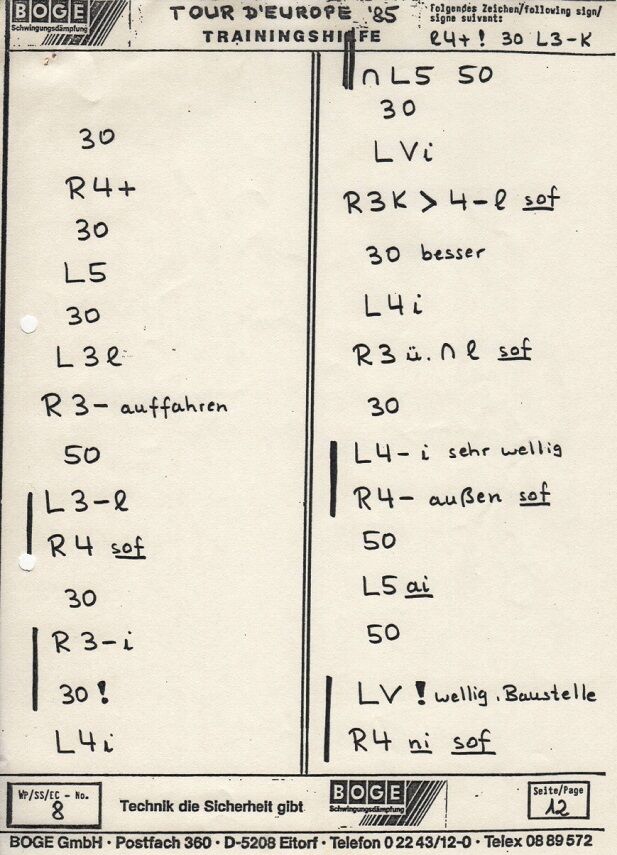 BOGE
Schwingungsdämpfung
TOUR D'EUROPE '85
TRAININGSHILFE
Folgendes Zeichen/following sign/
signe suivant:
R4+! 30 L3-K
30
R4+
30
L5
30
L3l
R3- auffahren
50
L3-l
R4 sof
30
R3-i
30!
L4i
∩ L5 50
30
LVi
R3K > 4-l sof
30 besser
L4i
R3 ü. ∩ l sof
30
L4-i sehr wellig
R4- außen sof
50
L5 ai
50
LV ! wellig. Baustelle
R4 ni sof
WP/SS/EC - No.
8
Technik die Sicherheit gibt
BOGE
Schwingungsdämpfung
Seite/Page
12
BOGE GmbH · Postfach 360 · D-5208 Eitorf · Telefon 0 22 43/12-0 · Telex 08 89 572